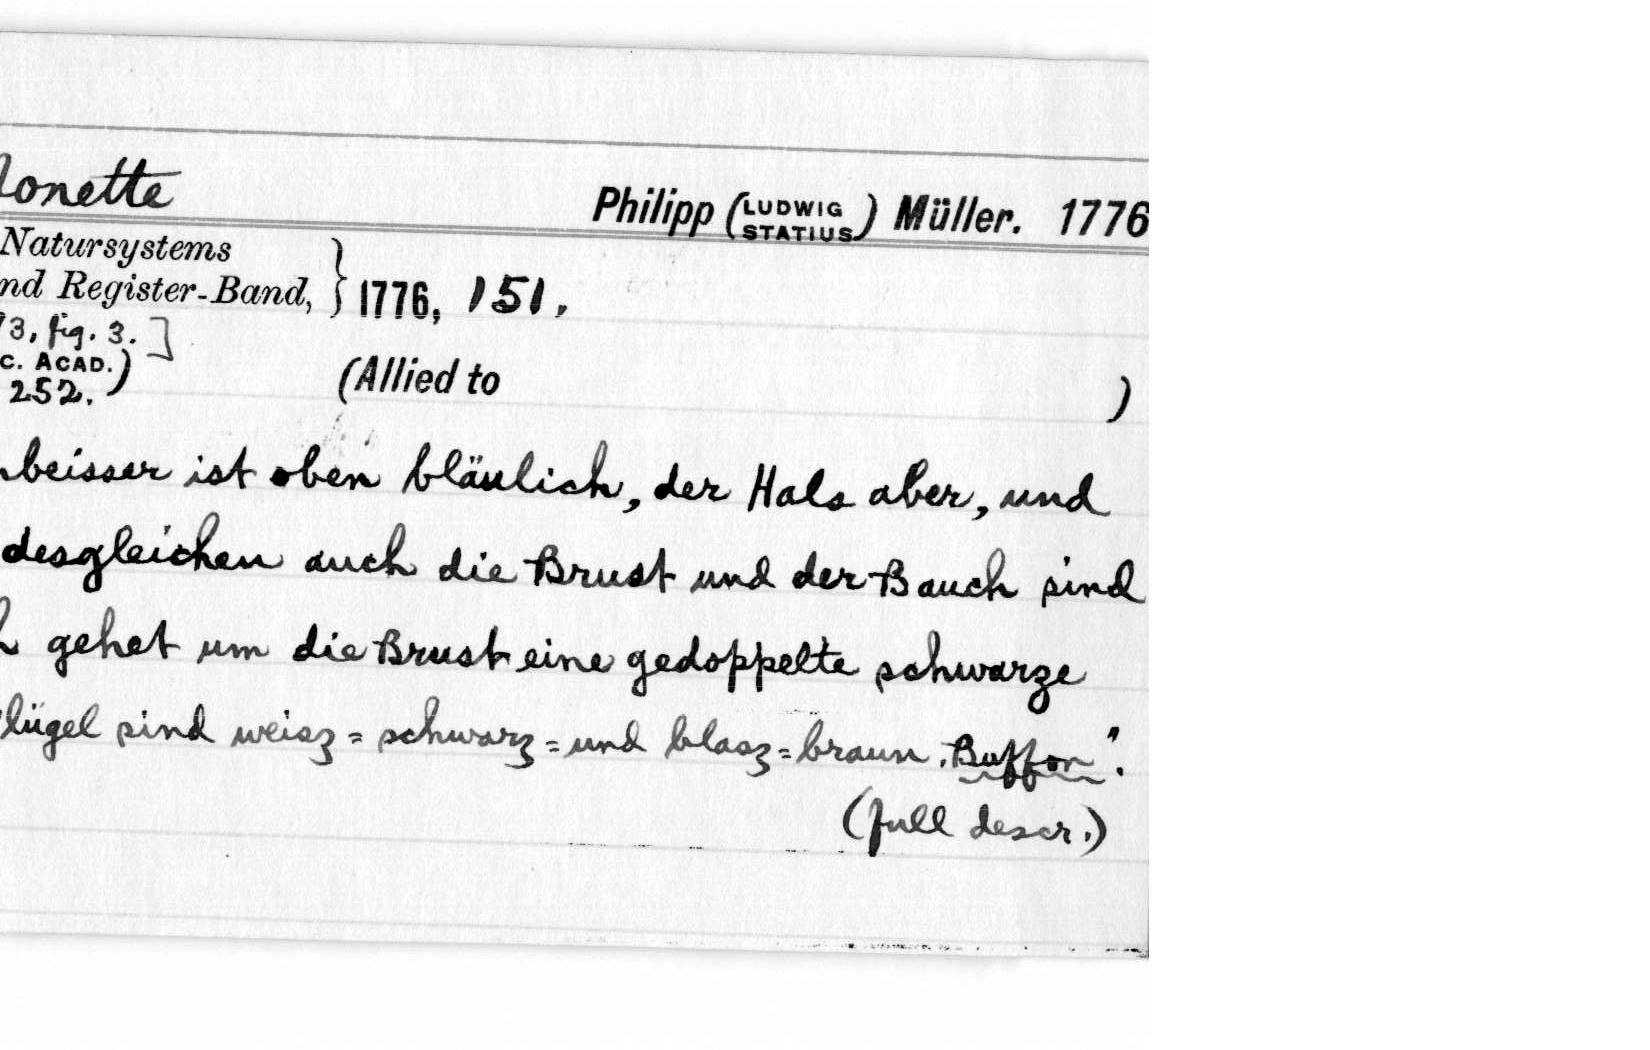 lonette
Philipp (LUDWIG STATIUS) Müller. 1776
Natursystems
nd Register-Band, } 1776, 151.
73, fig. 3.]
C. ACAD.)
252.
(Allied to )
beisser ist oben bläulich, der Hals aber, und
desgleichen auch die Brust und der Bauch sind
h gehet um die Brust eine gedoppelte schwarze
lügel sind weisz = schwarz = und blasz = braun. Buffon".
(full descr.)